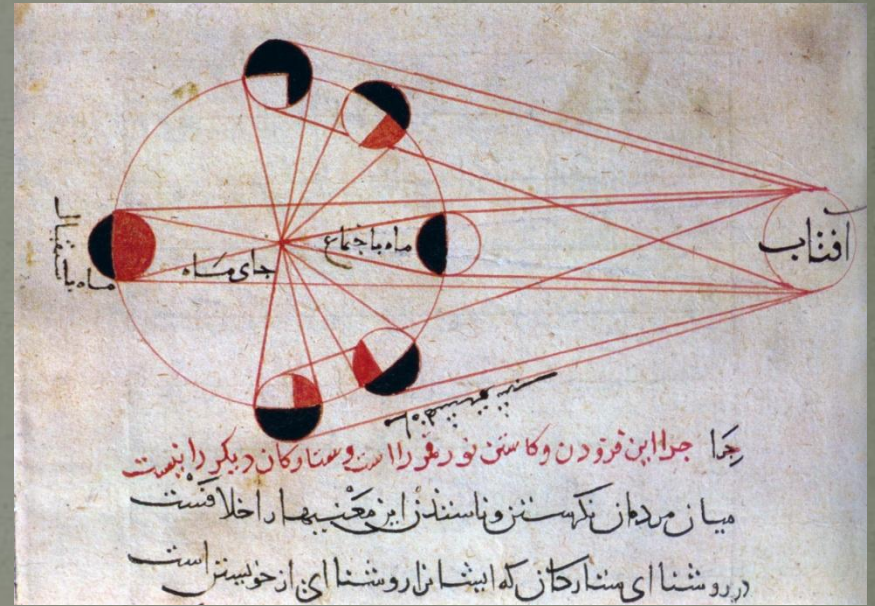 افتاب
ماه باجتماع
جای ماه
ماه باستقبال
جرا جرا این فزودن وکاستن نور قمر را است وستارکان دیکر را نیست
میان مردمان نکرستن این معنیها را
در روشنا ای ستارکان که ایشانرا روشنا ای از خویشتن است